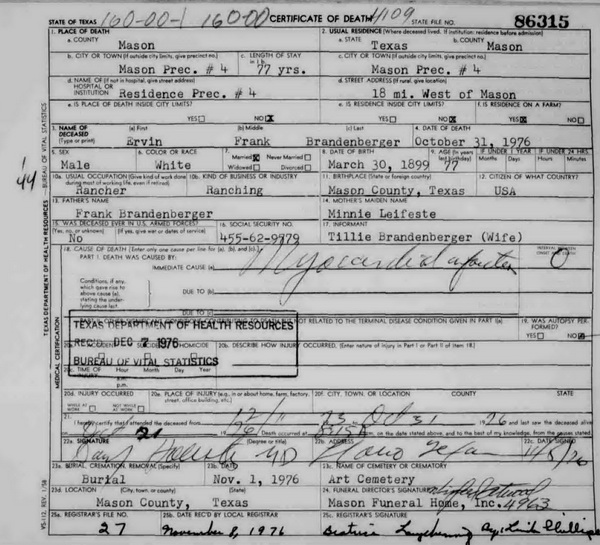 STATE OF TEXAS 160-00-1 160-00 CERTIFICATE OF DEATH 4109 STATE FILE NO. 86315
1. PLACE OF DEATH 2. USUAL RESIDENCE (Where deceased lived. If institution: residence before admission)
a. COUNTY a. STATE b. COUNTY
Mason Texas Mason
b. CITY OR TOWN (If outside city limits, give precinct no.) c. LENGTH OF STAY in 1 b. c. CITY OR TOWN (If outside city limits, give precinct no.)
Mason Prec. # 4 77 yrs. Mason Prec. # 4
d. NAME OF (If not in hospital, give street address) HOSPITAL OR INSTITUTION d. STREET ADDRESS (If rural, give location)
Residence Prec. # 4 18 mi. West of Mason
e. IS PLACE OF DEATH INSIDE CITY LIMITS? e. IS RESIDENCE INSIDE CITY LIMITS? f. IS RESIDENCE ON A FARM?
YES NO X YES NO X YES X NO
3. NAME OF DECEASED (a) First (b) Middle (c) Last 4. DATE OF DEATH
(Type or print) Ervin Frank Brandenberger October 31, 1976
5. SEX 6. COLOR OR RACE 7. Married X Never Married 8. DATE OF BIRTH 9. AGE (In years last birthday) IF UNDER 1 YEAR IF UNDER 24 HRS.
Widowed Divorced Months Days Hours Min.
Male White March 30, 1899 77
10a. USUAL OCCUPATION (Give kind of work done during most of working life, even if retired) 10b. KIND OF BUSINESS OR INDUSTRY 11. BIRTHPLACE (State or foreign country) 12. CITIZEN OF WHAT COUNTRY?
Rancher Ranching Mason County, Texas USA
13. FATHER'S NAME 14. MOTHER'S MAIDEN NAME
Frank Brandenberger Minnie Leifeste
15. WAS DECEASED EVER IN U.S. ARMED FORCES? 16. SOCIAL SECURITY NO. 17. INFORMANT
(Yes, no, or unknown) (If yes, give war or dates of service)
No 455-62-9779 Tillie Brandenberger (Wife)
18. CAUSE OF DEATH (Enter only one cause per line for (a), (b), and (c).) INTERVAL BETWEEN ONSET AND DEATH
PART I. DEATH WAS CAUSED BY:
IMMEDIATE CAUSE (a) Myocardial 0
Conditions, if any, which gave rise to above cause (a), stating the underlying cause last.
DUE TO (b)
DUE TO (c)
CONTRIBUTING TO DEATH BUT NOT RELATED TO THE TERMINAL DISEASE CONDITION GIVEN IN PART I(a) 19. WAS AUTOPSY PERFORMED?
YES NO
TEXAS DEPARTMENT OF HEALTH RESOURCES
REC'D DEC 7 1976
BUREAU OF VITAL STATISTICS
HOMICIDE 20b. DESCRIBE HOW INJURY OCCURRED. (Enter nature of injury in Part I or Part II of item 18.)
20c. TIME OF INJURY Hour Month Day Year
a.m.
p.m.
20d. INJURY OCCURRED 20e. PLACE OF INJURY (e.g., in or about home, farm, factory, street, office building, etc.) 20f. CITY, TOWN, OR LOCATION COUNTY STATE
WHILE AT WORK NOT WHILE AT WORK
21. I hereby certify that I attended the deceased from 12/11 1973 Oct 31 1976 and last saw the deceased alive
on Oct 21 1976 Death occurred at on the date stated above, and to the best of my knowledge, from the causes stated
22a. SIGNATURE (Degree or title) 22b. ADDRESS 22c. DATE SIGNED
MD Llano Texas
23a. BURIAL, CREMATION, REMOVAL (Specify) 23b. DATE 23c. NAME OF CEMETERY OR CREMATORY
Burial Nov. 1, 1976 Art Cemetery
23d. LOCATION (City, town, or county) (State) 24. FUNERAL DIRECTOR'S SIGNATURE
Mason County, Texas Mason Funeral Home, Inc. 4963
25a. REGISTRAR'S FILE NO. 25b. DATE REC'D BY LOCAL REGISTRAR 25c. REGISTRAR'S SIGNATURE
27 November 8, 1976 Beatrice
TEXAS DEPARTMENT OF HEALTH RESOURCES — BUREAU OF VITAL STATISTICS
MEDICAL CERTIFICATION
VS-112, REV. 1/58
'44